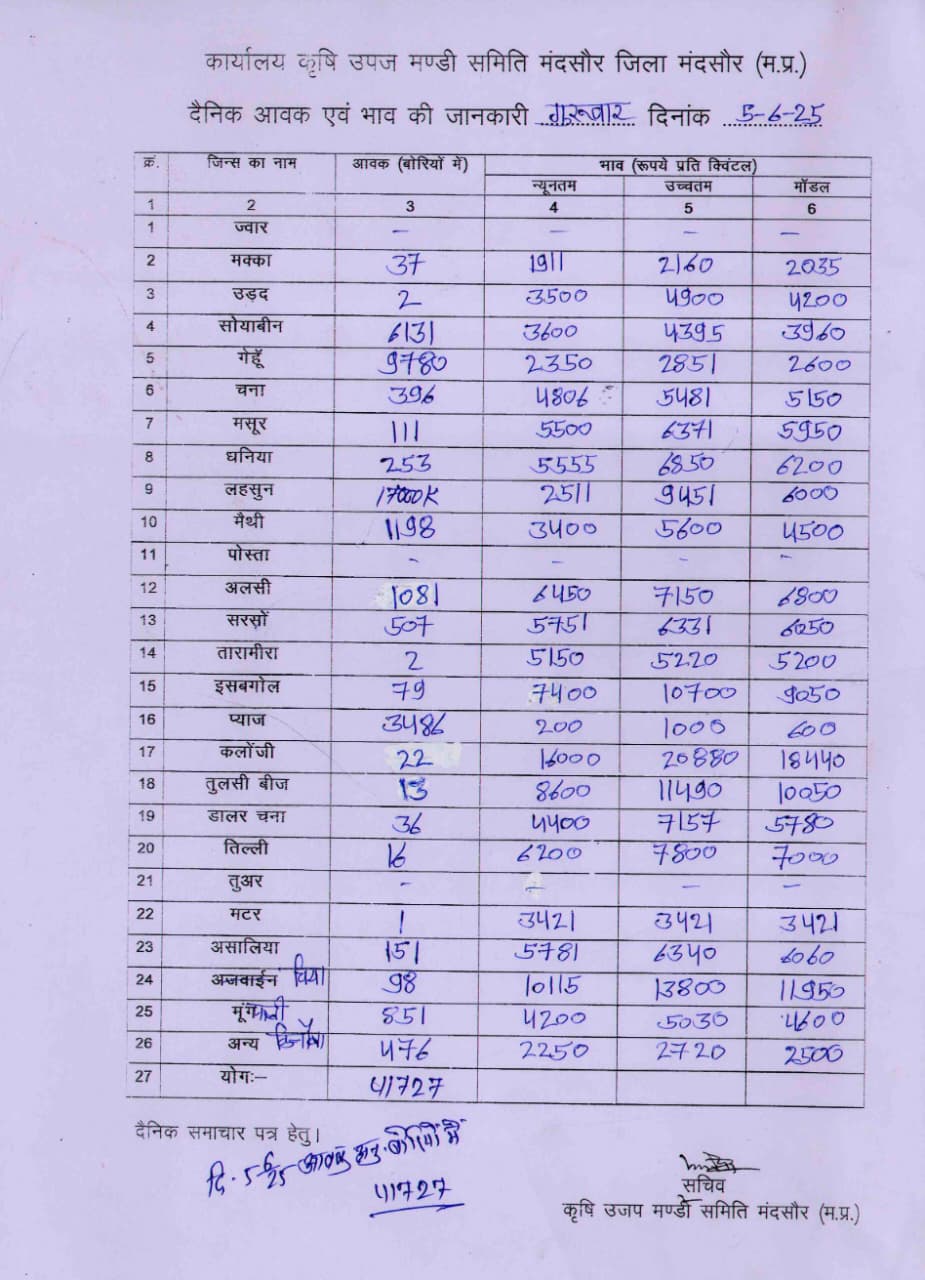 कार्यालय कृषि उपज मण्डी समिति मंदसौर जिला मंदसौर (म.प्र.)
दैनिक आवक एवं भाव की जानकारी गुरूवार दिनांक 5-6-25
क्रं. जिन्स का नाम आवक (बोरियों में) भाव (रूपये प्रति क्विंटल)
न्यूनतम उच्चतम मॉडल
1 2 3 4 5 6
1 ज्वार – – – –
2 मक्का 37 1911 2160 2035
3 उड़द 2 3500 4900 4200
4 सोयाबीन 6131 3600 4395 3960
5 गेहूॅ 9780 2350 2851 2600
6 चना 396 4806 5481 5150
7 मसूर 111 5500 6371 5950
8 धनिया 253 5555 6850 6200
9 लहसुन 17000K 2511 9451 6000
10 मैथी 1198 3400 5600 4500
11 पोस्ता - - - -
12 अलसी 1081 6450 7150 6800
13 सरसों 507 5751 6331 6050
14 तारामीरा 2 5150 5220 5200
15 इसबगोल 79 7400 10700 9050
16 प्याज 3486 200 1000 600
17 कलोंजी 22 16000 20880 18440
18 तुलसी बीज 13 8600 11490 10050
19 डालर चना 36 4400 7157 5780
20 तिल्ली 16 6200 7800 7000
21 तुअर - - – –
22 मटर 1 3421 3421 3421
23 असालिया 151 5781 6340 6060
24 अजवाईन चिया 98 10115 13800 11950
25 मूंगफली 851 4200 5030 4600
26 अन्य 476 2250 2720 2500
27 योगः– 41727
दैनिक समाचार पत्र हेतु।
दि. 5 6/25 आवक अनु. बोरियों में
41727
सचिव
कृषि उजप मण्डी समिति मंदसौर (म.प्र.)